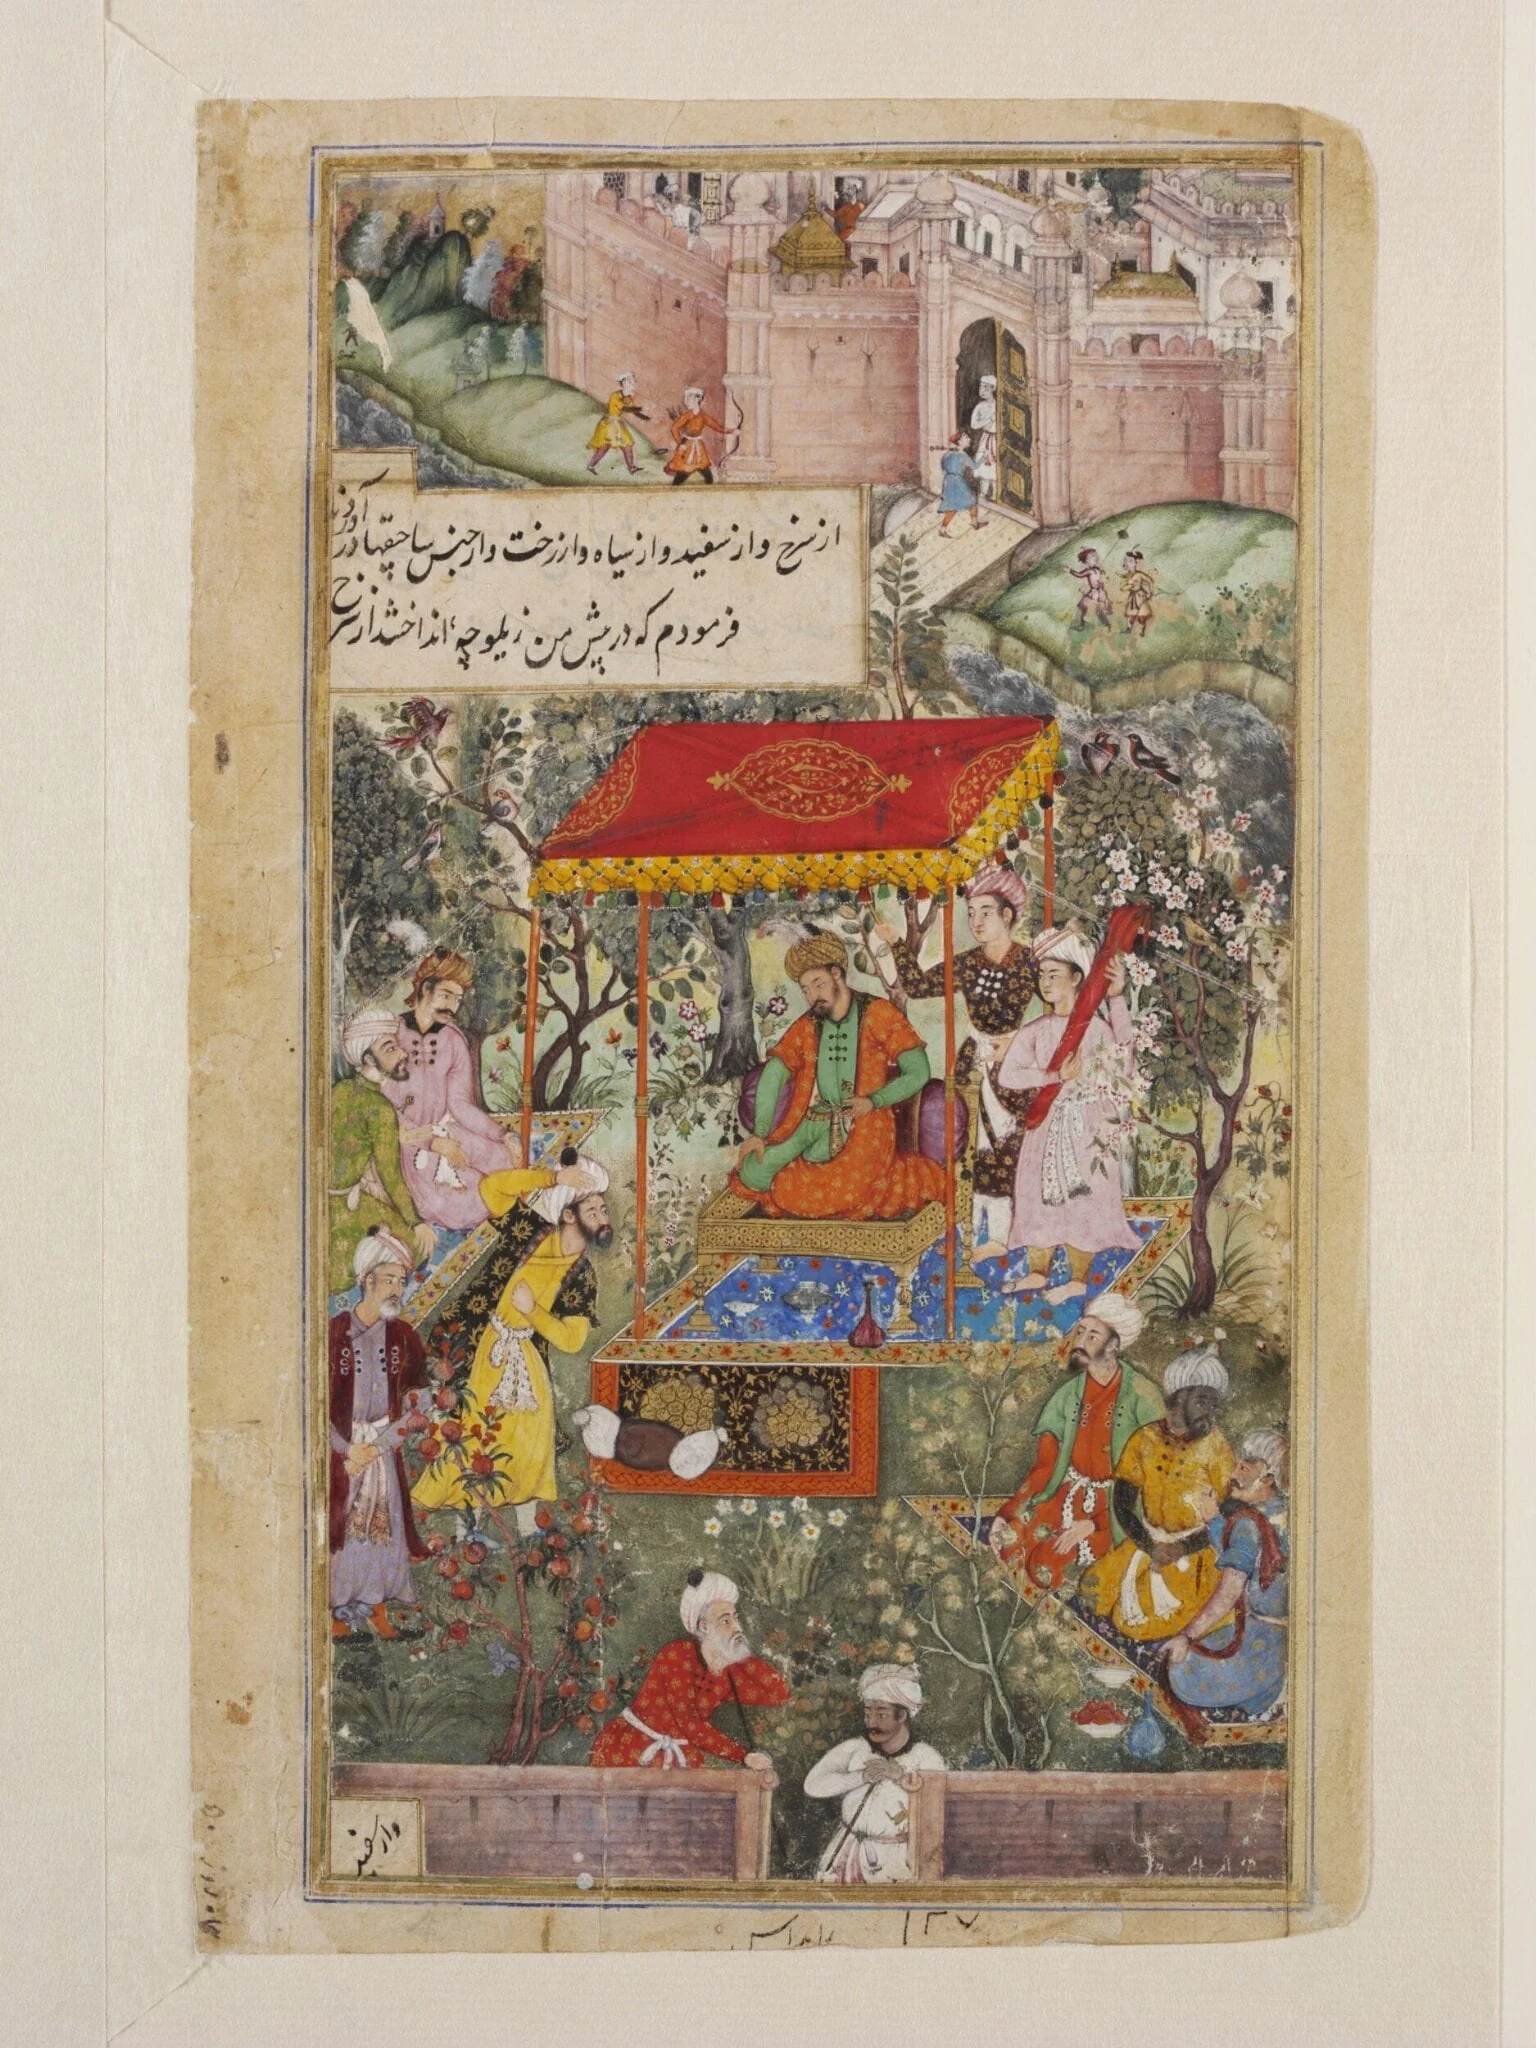 از سرخ و از سفید و از سیاه و از رخت و از جنس ساچقها در
فرمودم که در پیش من زیلوچه انداختند از سرخ
و از سفید
۱۳۷